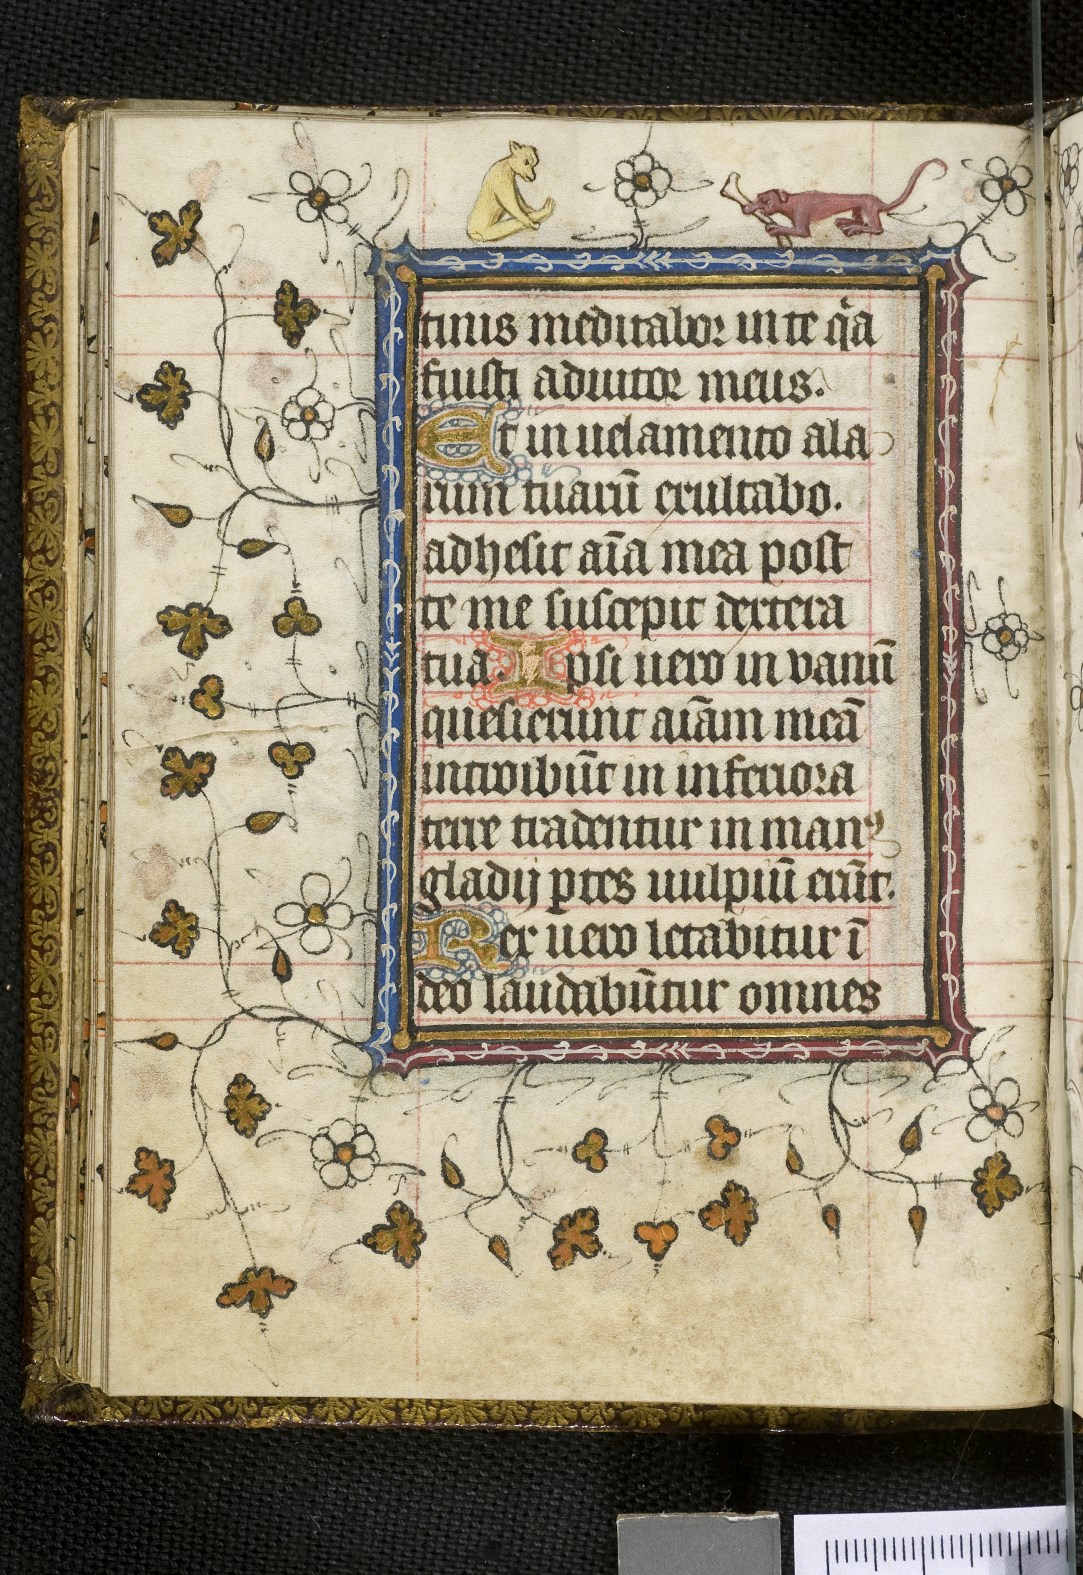 tinis meditabor in te q̇a
fuisti adiutor meus.
Et in uelamento ala
rum tuarū exultabo.
adhesit aīa mea post
te me suscepit dextera
tua. Ipsi uero in vanū
quesierunt aīam meā
introibūt in inferiora
terre tradentur in manꝰ
gladij ptes uulpiū erūt.
Rex uero letabitur ī
deo laudabūtur omnes